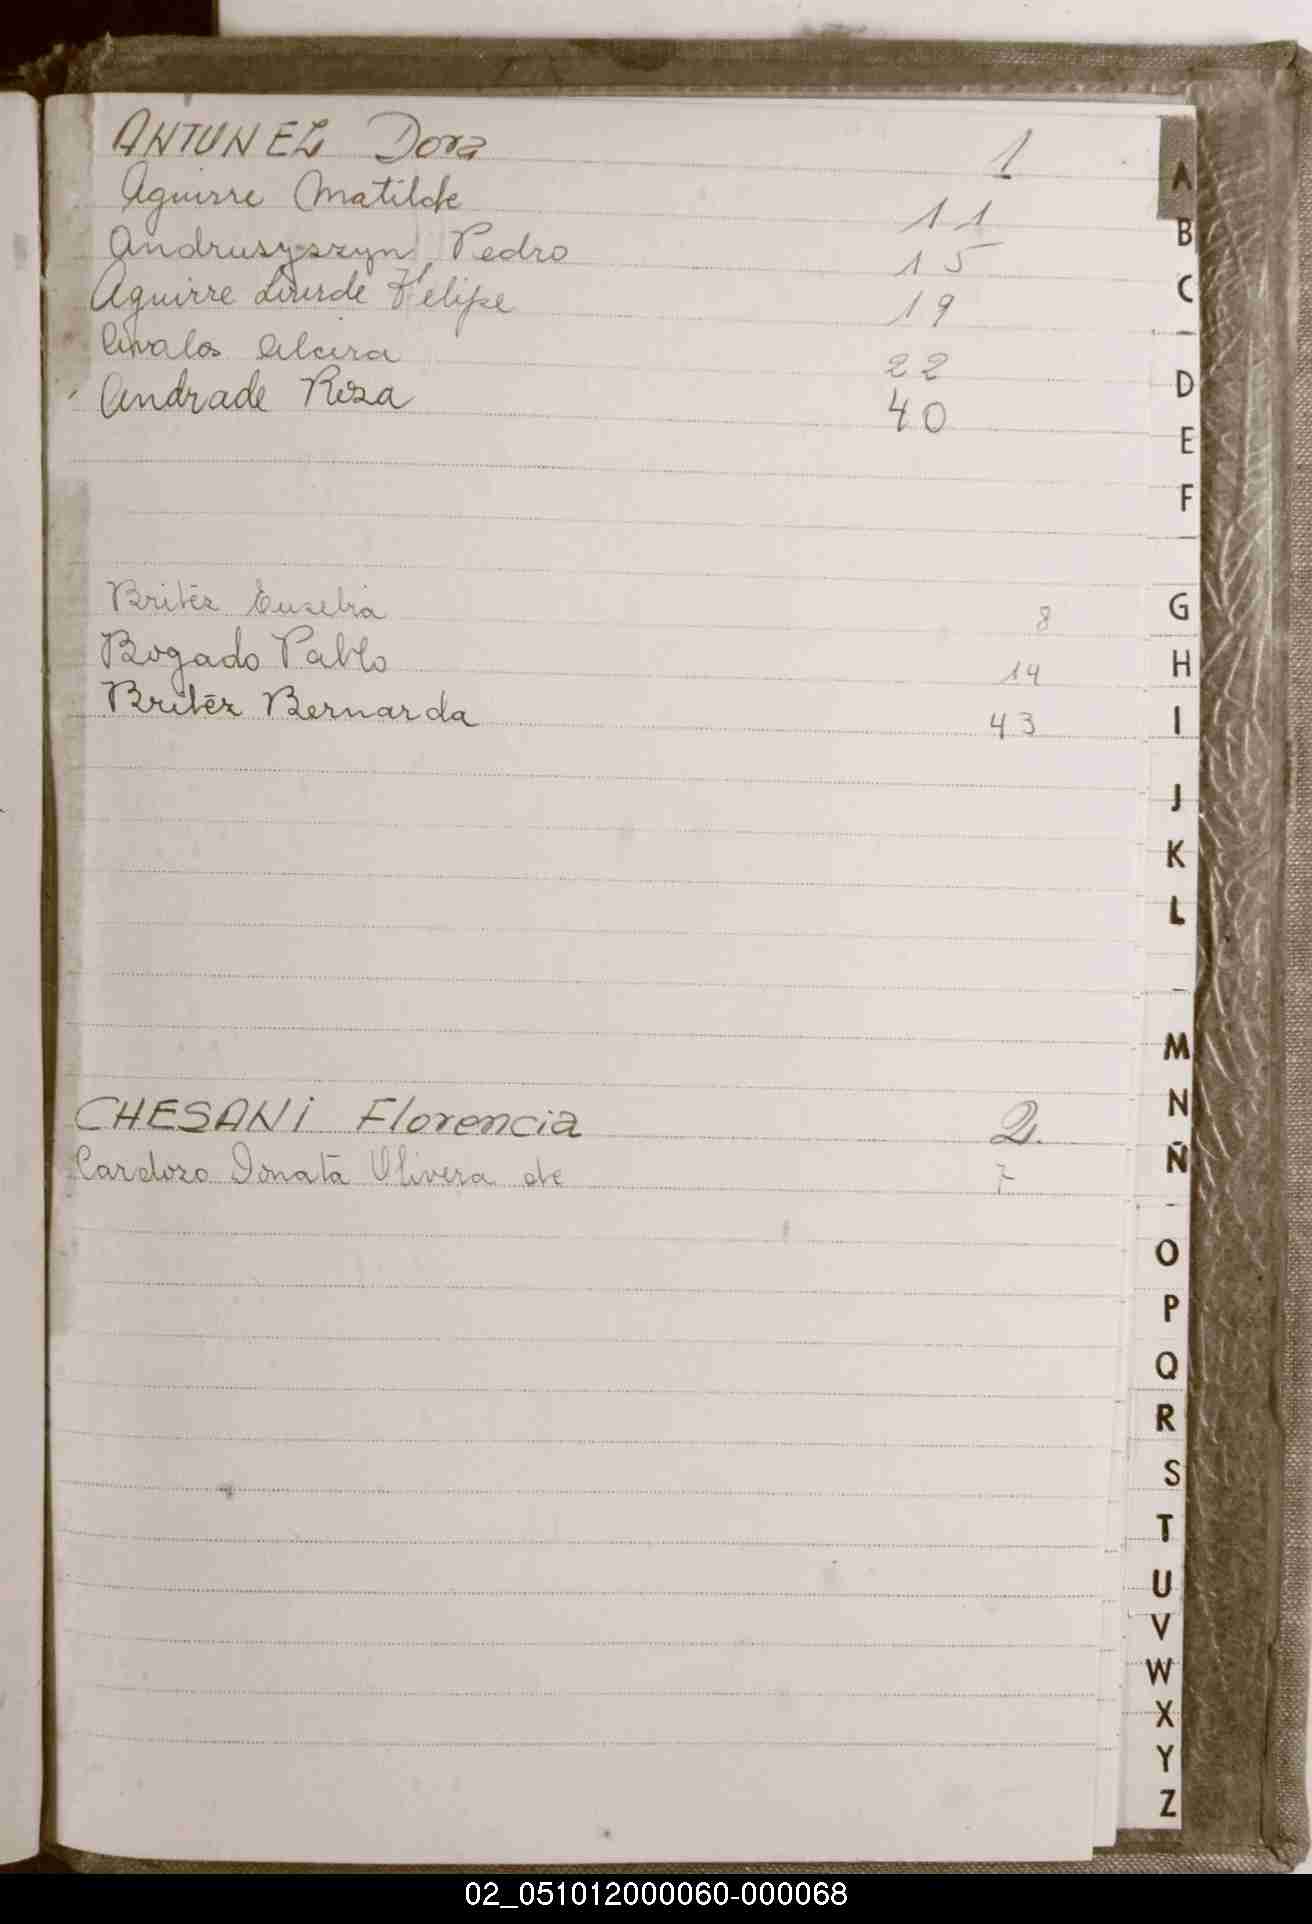 ANTUNEZ Dora 1
Aguirre Matilde 11
Andrusyszyn Pedro 15
Aguirre Felipe 19
Avalos Alcira 22
Andrade Rosa 40
Britéz Eusebia 8
Bogado Pablo 14
Britéz Bernarda 43
CHESANI Florencia 2
Cardozo Donata Olivera de 7
A
B
C
D
E
F
G
H
I
J
K
L
M
N
Ñ
O
P
Q
R
S
T
U
V
W
X
Y
Z
02_051012000060-000068